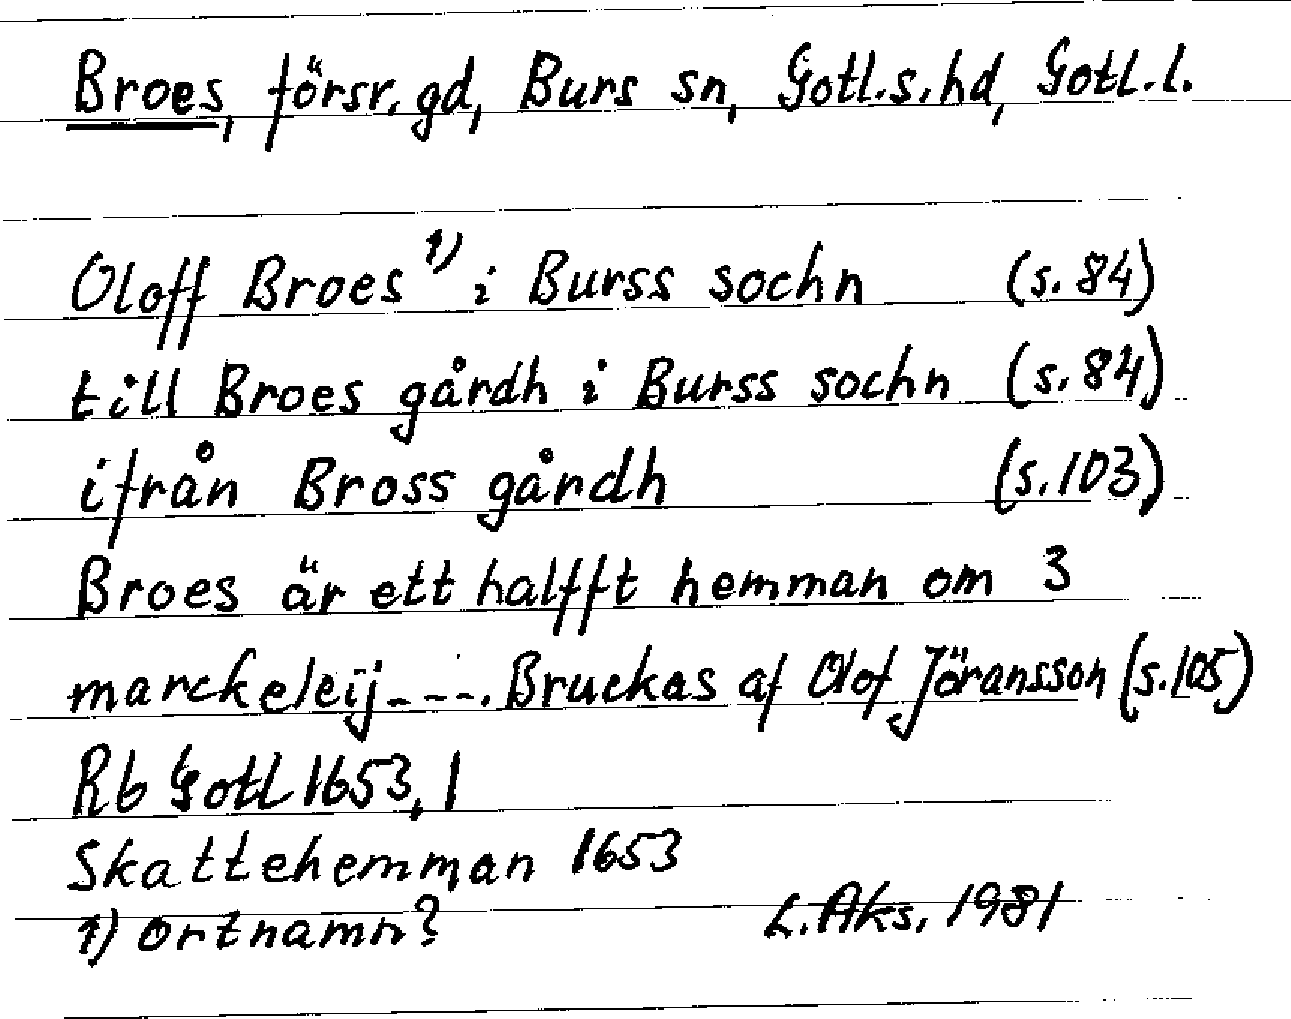 Broes, försr. gd, Burs sn, Gotl. s. hd, Gotl. l.
Oloff Broes 1) i Burss sochn (s. 84)
till Broes gårdh i Burss sochn (s. 84)
ifrån Bross gårdh (s. 103)
Broes är ett halfft hemman om 3
marckeleij - - - . Bruckas af Olof Jöransson (s. 105)
Rb Gotl 1653, 1
Skattehemman 1653
1) ortnamn? L. Aks. 1981